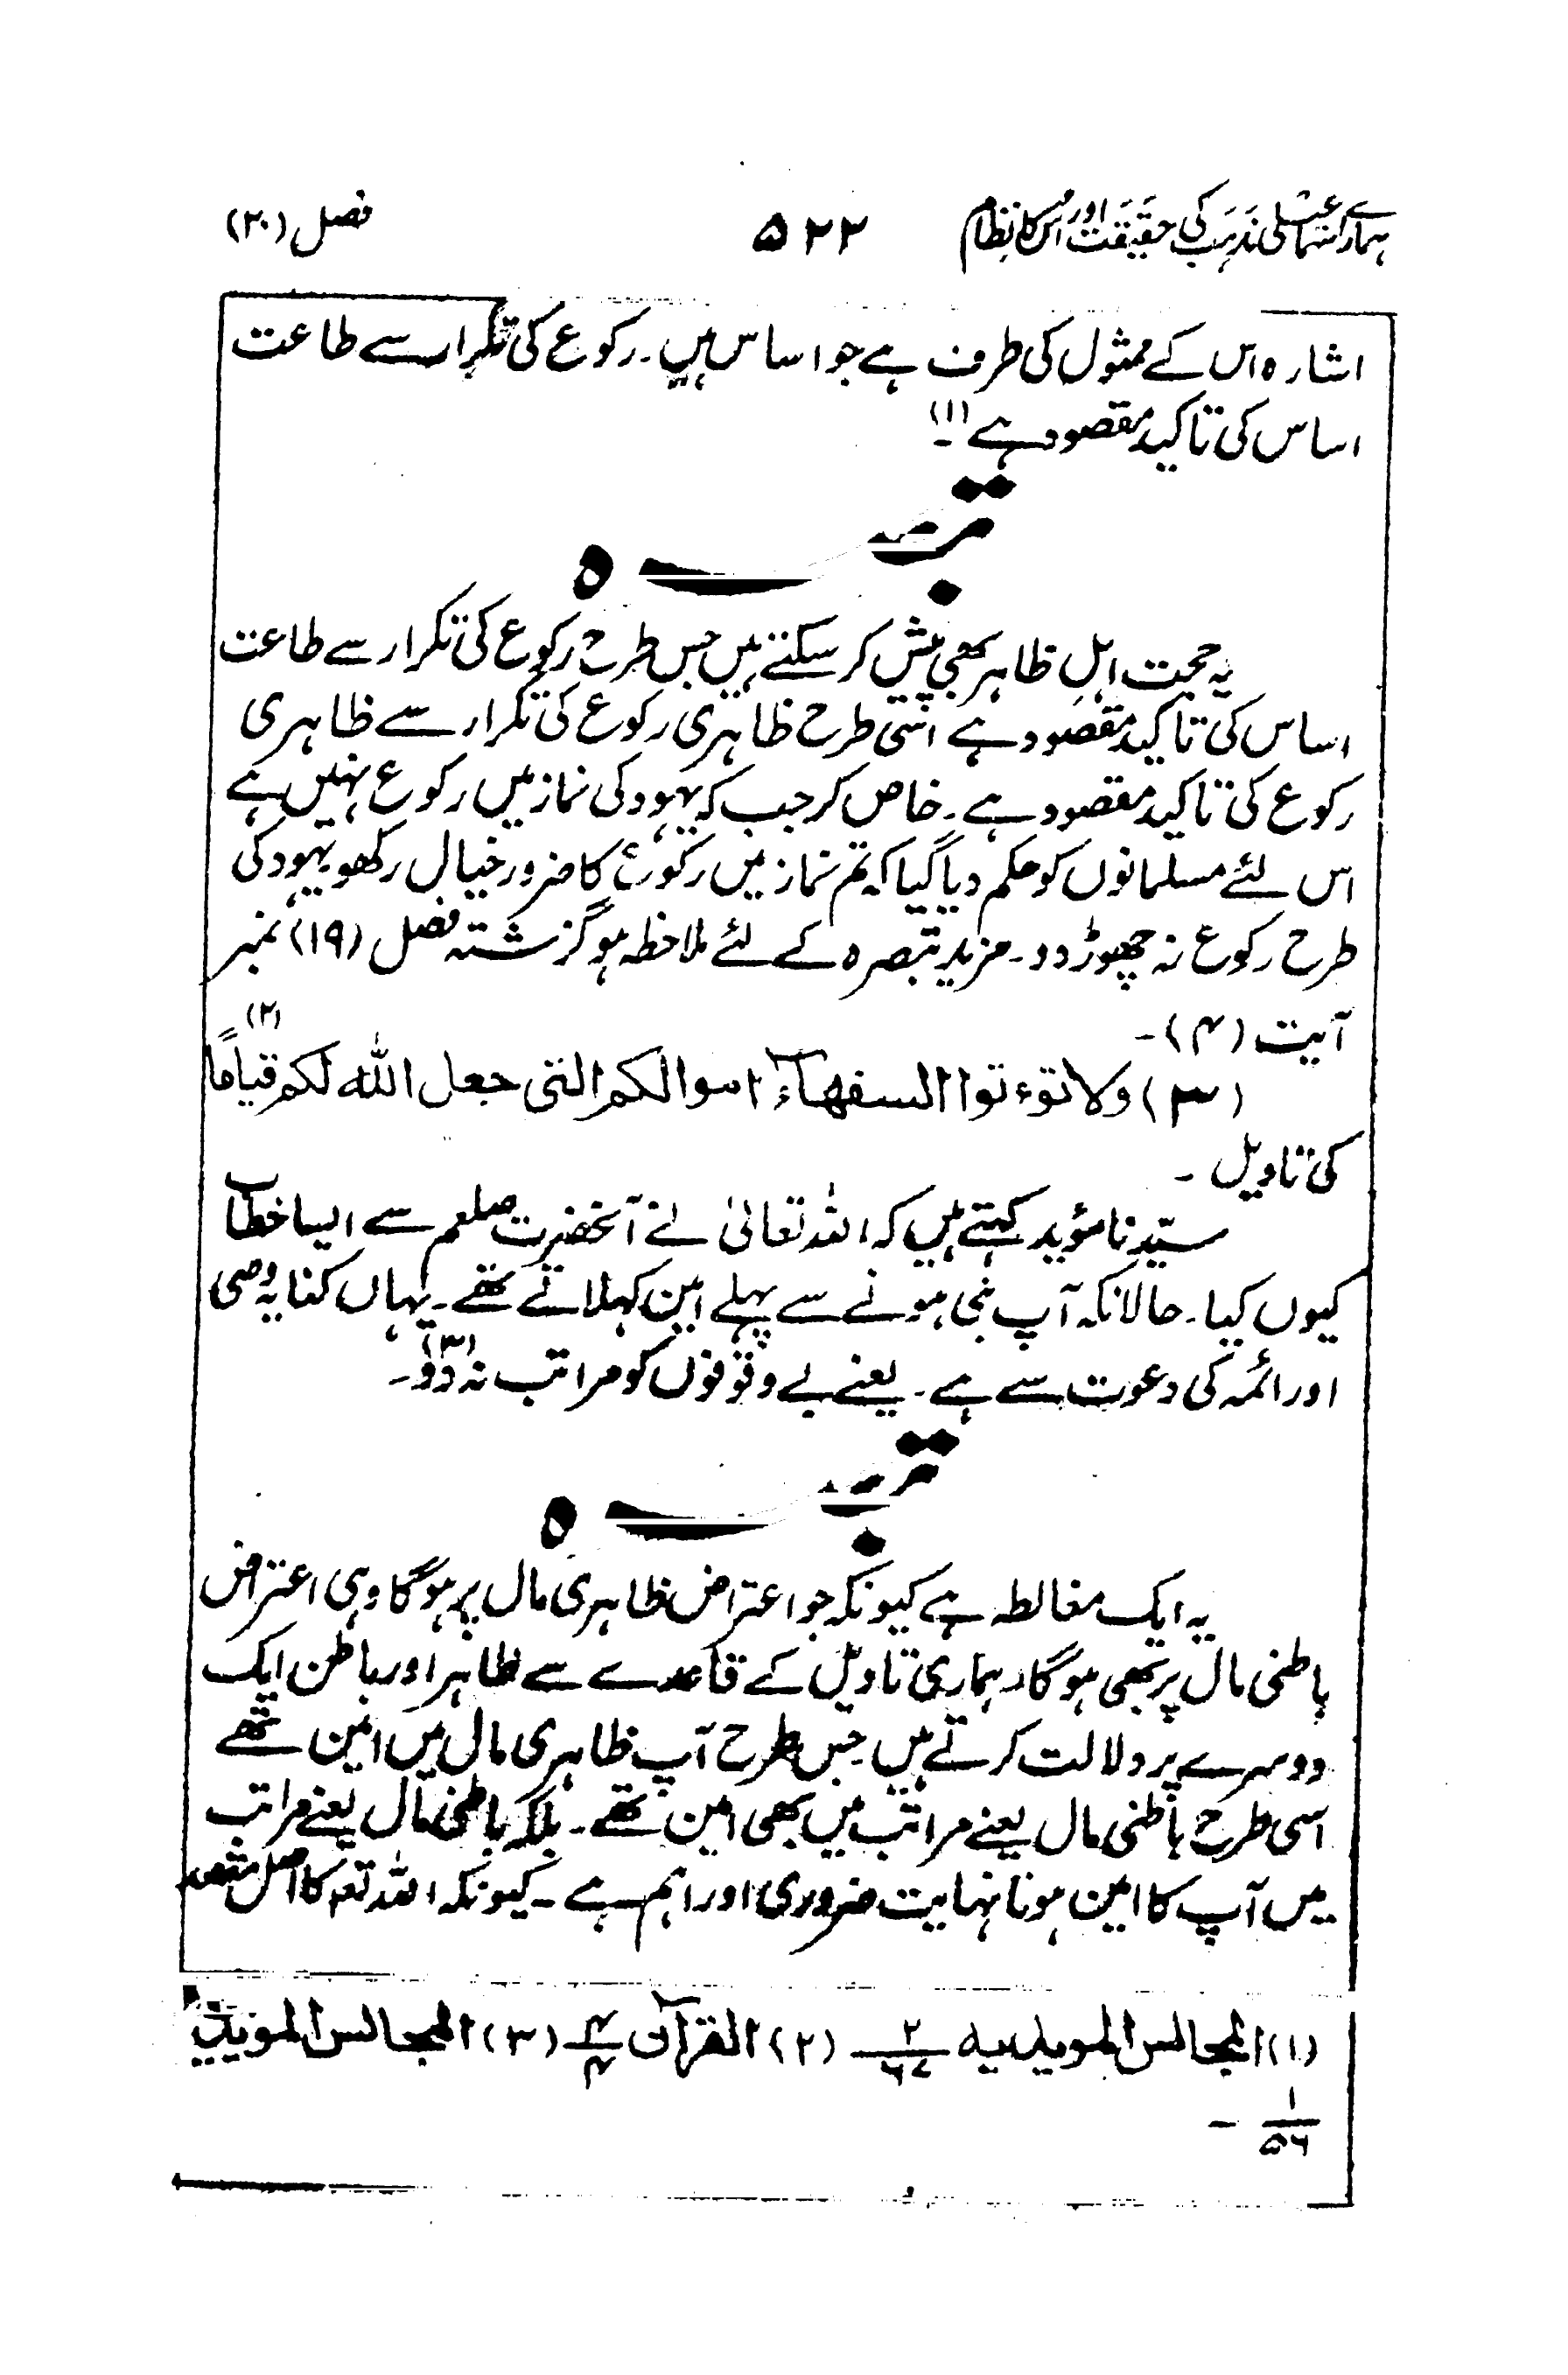 ہمارے اسماعیلی مذہب کی حقیقت اور اس کا نظام ۵۲۲ فصل (۲۰)
اشارہ اس کے ممثول کی طرف ہے جو اساس ہیں۔ رکوع کی تکرار سے طاعت
اساس کی تاکید مقصود ہے (۱)۔
تبصرہ
یہ حجت اہلِ ظاہر بھی پیش کر سکتے ہیں جس طرح رکوع کی تکرار سے طاعت
اساس کی تاکید مقصود ہے اسی طرح ظاہری رکوع کی تکرار سے ظاہری
رکوع کی تاکید مقصود ہے۔ خاص کر جب کہ یہود کی نماز میں رکوع نہیں ہے
اس لئے مسلمانوں کو حکم دیا گیا کہ تم نماز میں رکوع کا ضرور خیال رکھو یہود کی
طرح رکوع نہ چھوڑ دو۔ مزید تبصرہ کے لئے ملاحظہ ہو گزشتہ فصل (۱۹) نمبر
آیت (۴)۔
(۳) ولا تؤتوا السفهآء اموالكم التى جعل الله لكم قياماً (۲)
کی تاویل ۔
سیدنا مؤید کہتے ہیں کہ اللہ تعالیٰ نے آنحضرت صلعم سے ایسا خطاب
کیوں کیا۔ حالانکہ آپ نبی ہونے سے پہلے امین کہلاتے تھے۔ یہاں کنایہ وصی
اور ائمہ کی دعوت سے ہے۔ یعنے بے وقوفوں کو مراتب نہ دو (۳)۔
تبصرہ
یہ ایک مغالطہ ہے کیونکہ جو اعتراض ظاہری مال پر ہوگا وہی اعتراض
باطنی مال پر بھی ہوگا۔ ہماری تاویل کے قاعدے سے ظاہر اور باطن ایک
دوسرے پر دلالت کرتے ہیں۔ جس طرح آپ ظاہری مال میں امین تھے
اسی طرح باطنی مال یعنے مراتب میں بھی امین تھے۔ بلکہ باطنی مال یعنے مراتب
میں آپ کا امین ہونا نہایت ضروری اور اہم ہے۔ کیونکہ اللہ تعہ کا اصل مقصد
(۱) المجالس المویدیه ۲/۶۷ (۲) القرآن ۴/۴ (۳) المجالس المویدیه
۱/۵۶ ۔